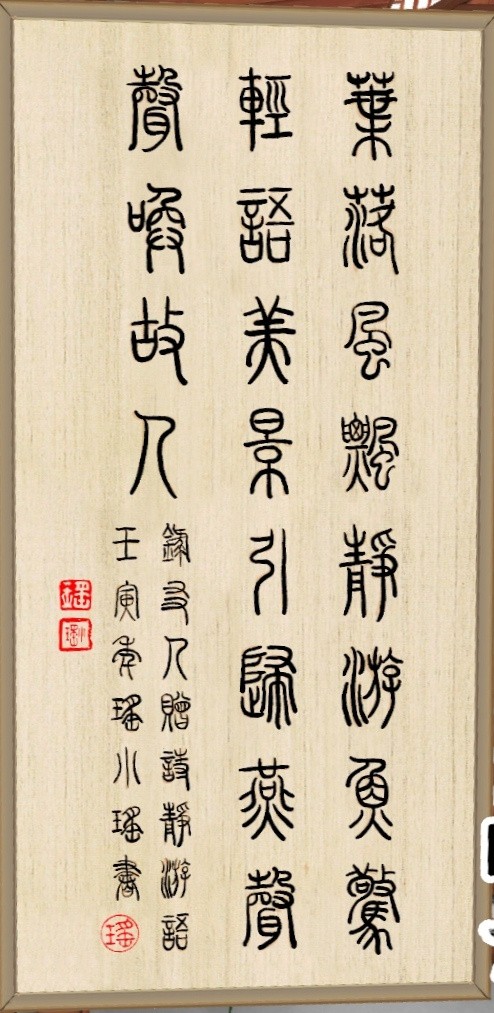 葉落風飄靜游魚驚
輕語美景引歸燕聲
聲喚故人
錄友人贈詩靜游語
壬寅年瑤小瑤書
瑤
瑤